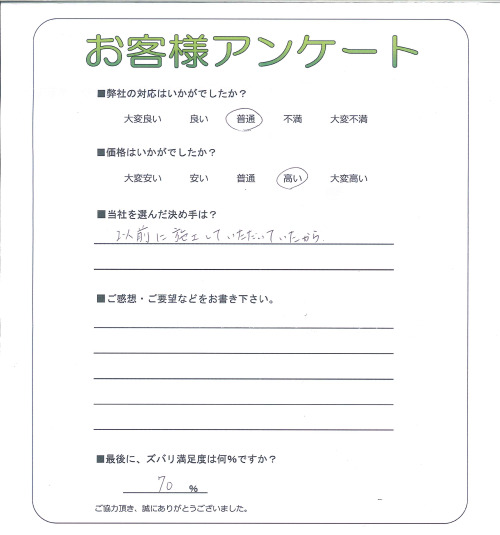 お客様アンケート
■弊社の対応はいかがでしたか？
大変良い 良い 普通 不満 大変不満
■価格はいかがでしたか？
大変安い 安い 普通 高い 大変高い
■当社を選んだ決め手は？
以前に施工していただいていたから.
■ご感想・ご要望などをお書き下さい。
■最後に、ズバリ満足度は何％ですか？
70 %
ご協力頂き、誠にありがとうございました。